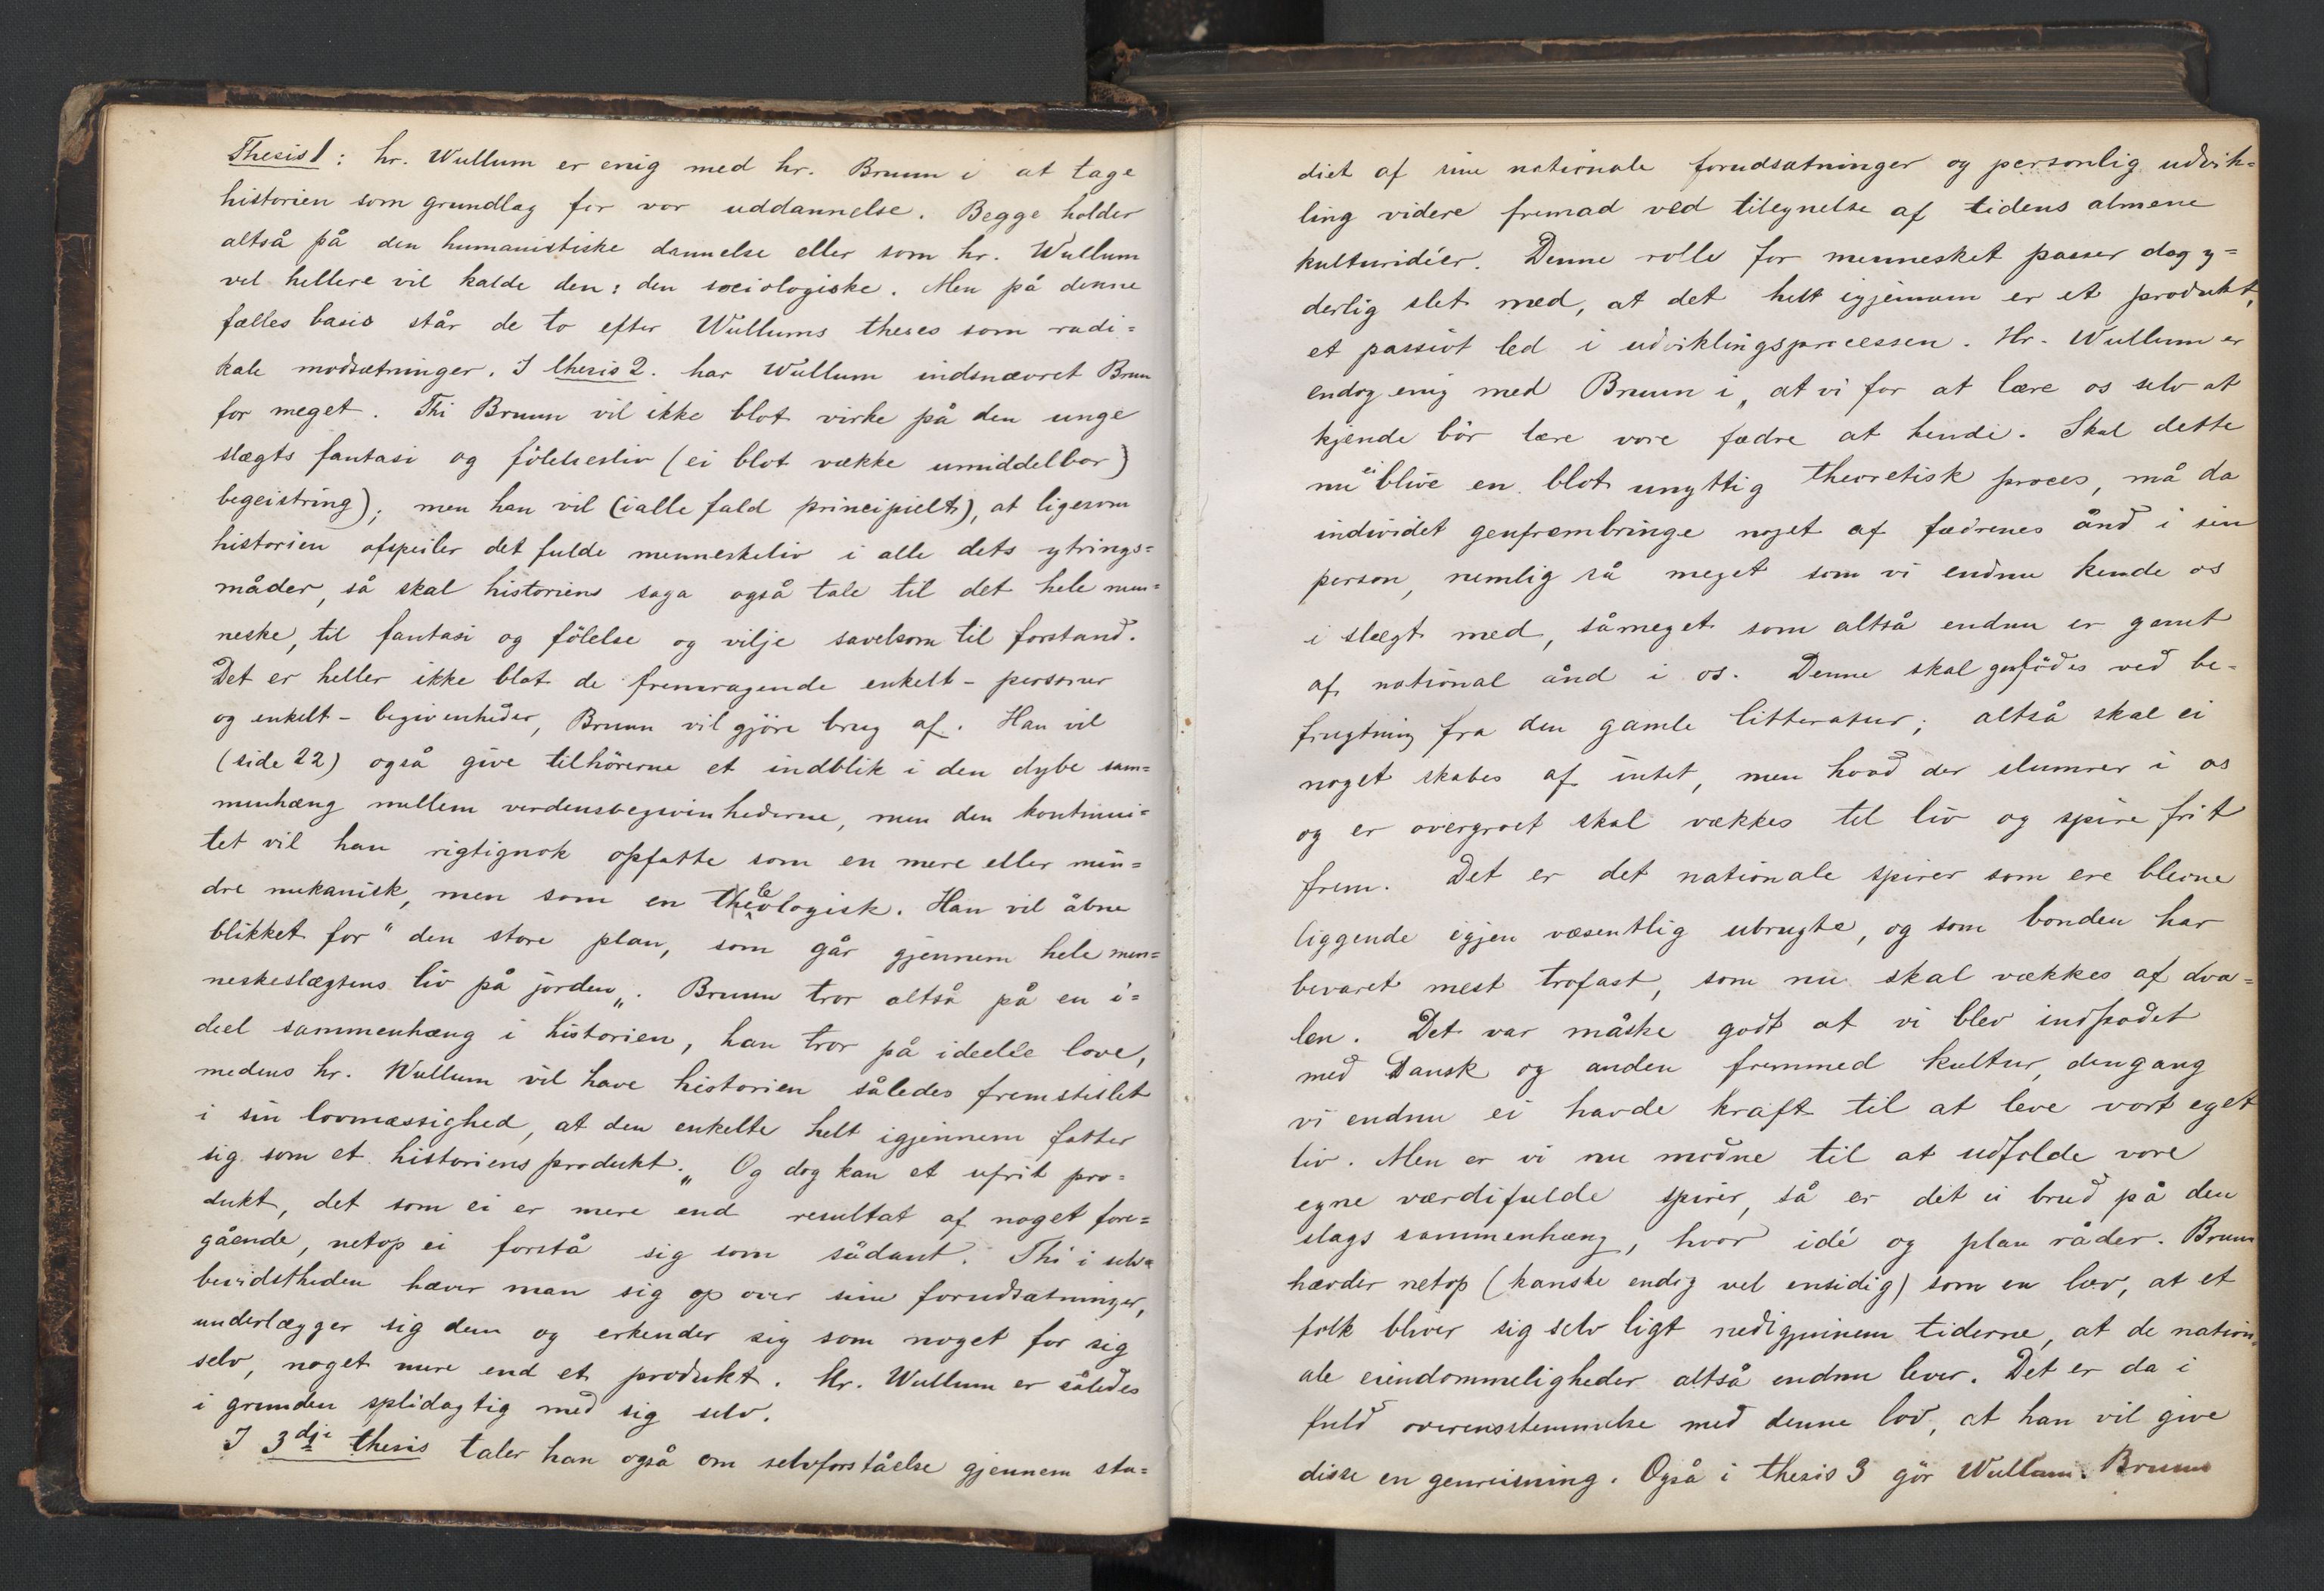 Thesis 1: hr. Wullum er enig med hr. Bruun i at tage
historien som grundlag for vor uddannelse. Begge holder
altså på den humanistiske dannelse eller som hr. Wullum
vel hellere vil kalde den: den sociologiske. Men på denne
fælles basis står de to efter Wullums theses som radi=
kale modsætninger. I thesis 2. har Wullum indsnævret Bruun
for meget. Thi Bruun vil ikke blot virke på den unge
slægts fantasi og fölelsesliv (ei blot vække umiddelbar)
begeistring); men han vil (ialle fald principielt), at ligesom
historien afspeiler det fulde menneskeliv i alle dets ytrings=
måder, så skal historiens saga også tale til det hele men=
neske, til fantasi og fölelse og vilje savelsom til forstand.
Det er heller ikke blot de fremragende enkelt-personer
og enkelt-begivenheder, Bruun vil gjöre brug af. Han vil
(side 22) også give tilhörerne et indblik i den dybe sam=
menhæng mellem verdensbegivenhederne, men den kontinui=
tet vil han rigtignok opfatte som en mere eller min=
dre mekanisk, men som en theologisk. Han vil åbne
blikket for "den store plan, som går gjennem hele men=
neskeslægtens liv på jorden„. Bruun tror altså på en i=
deel sammenhæng i historien, han tror på ideelle love,
medens hr. Wullum vil have historien således fremstillet
i sin lovmæssighed, at den enkelte helt igjennem fatter
sig som et historiens produkt.„ Og dog kan et ufrit pro=
dukt, det som ei er mere end resultat af noget fore=
gående, netop ei forstå sig som sådant. Thi i selv=
bevidstheden hæver man sig op over sine forudsætninger,
underlægger sig dem og erkender sig som noget for sig
selv, noget mere end et produkt. Hr. Wullum er således
i grunden splidagtig med sig selv.
I 3die thesis taler han også om selvforståelse gjennem stu=
diet af sine nationale forudsætninger og personlig udvik=
ling videre fremad ved tilegnelse af tidens almene
kulturidéer. Denne rolle for mennesket passer dog y=
derlig slet med, at det helt igjennem er et produkt,
et passivt led i udviklingsprocessen. Hr. Wullum er
endog enig med Bruun i„ at vi for at lære os selv at
kjende bör lære vore fædre at kende. Skal dette
nu ei blive en blot unyttig theoretisk proces, må da
individet genfrembringe noget af fædrenes ånd i sin
person, nemlig så meget som vi endnu kende os
i slægt med, såmeget som altså endnu er gemt
af national ånd i os. Denne skal genfödes ved be=
frugtning fra den gamle litteratur; altså skal ei
noget skabes af intet, men hvad der slumrer i os
og er overgroet skal vækkes til liv og spire frit
frem. Det er det nationale spirer som ere blevne
liggende igjen væsentlig ubrugte, og som bonden har
bevaret mest trofast, som nu skal vækkes af dva=
len. Det var måske godt at vi blev indpodet
med Dansk og anden fremmed kultur, dengang
vi endnu ei havde kraft til at leve vort eget
liv. Men er vi nu modne til at udfolde vore
egne værdifulde spirer, så er det ei brud på den
slags sammenhæng, hvor idé og plan råder. Bruun
hævder netop (kanske endog vel ensidig) som en lov, at et
folk bliver sig selv ligt nedigjennem tiderne, at de nation=
ale eiendommeligheder altså endnu lever. Det er da i
fuld overensstemmelse med denne lov, at han vil give
disse en genreisning. Også i thesis 3 gör Wullum Bruun